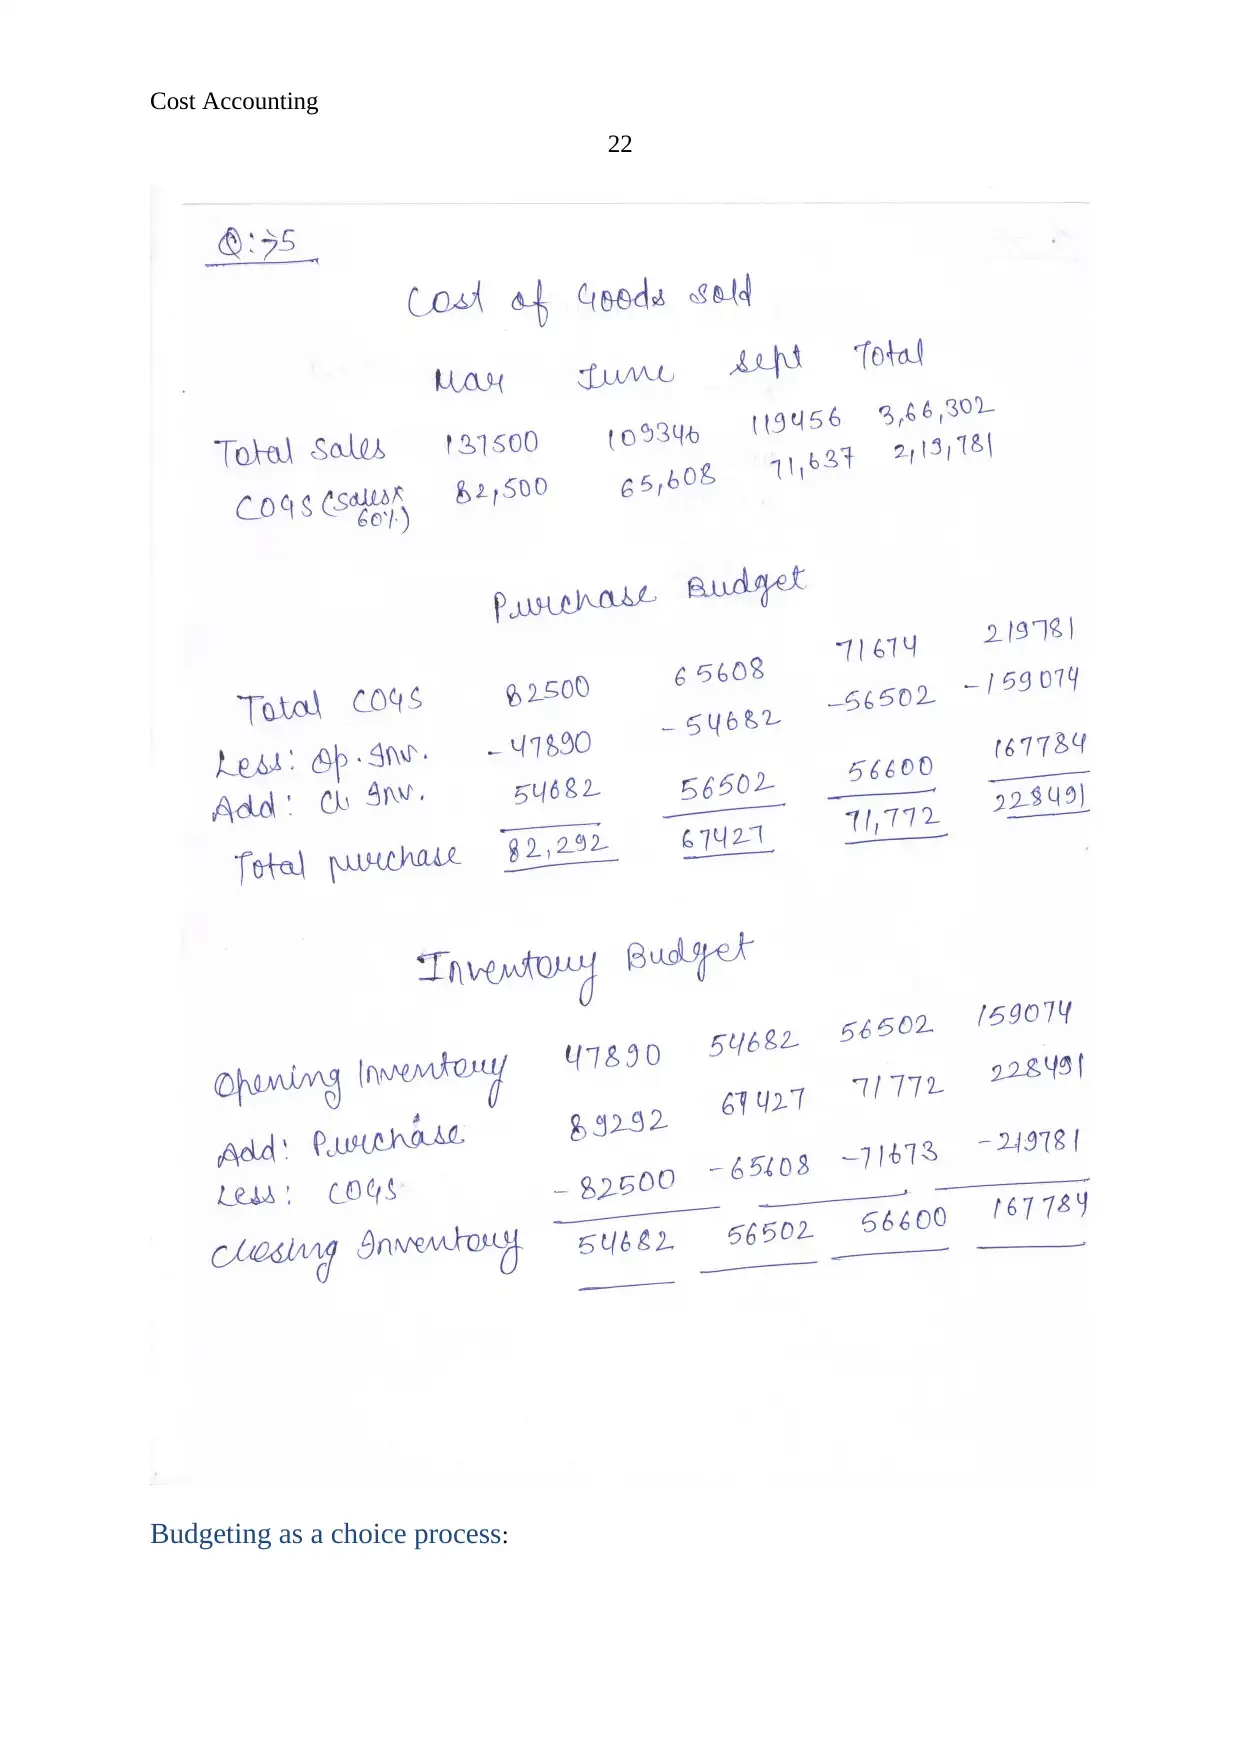 Cost Accounting
22
Q:→5
Cost of Goods sold
Mar June Sept Total
Total Sales 137500 109346 119456 3,66,302
COGS (Sales× 60%) 82,500 65,608 71,637 2,19,781
Purchase Budget
Total COGS 82500 65608 71674 219781
Less: Op. Inv. -47890 -54682 -56502 -159074
Add: Cl. Inv. 54682 56502 56600 167784
Total purchase 82,292 67427 71,772 228491
Inventory Budget
Opening Inventory 47890 54682 56502 159074
Add: Purchase 89292 67427 71772 228491
Less: COGS -82500 -65608 -71673 -219781
Closing Inventory 54682 56502 56600 167784
Budgeting as a choice process: